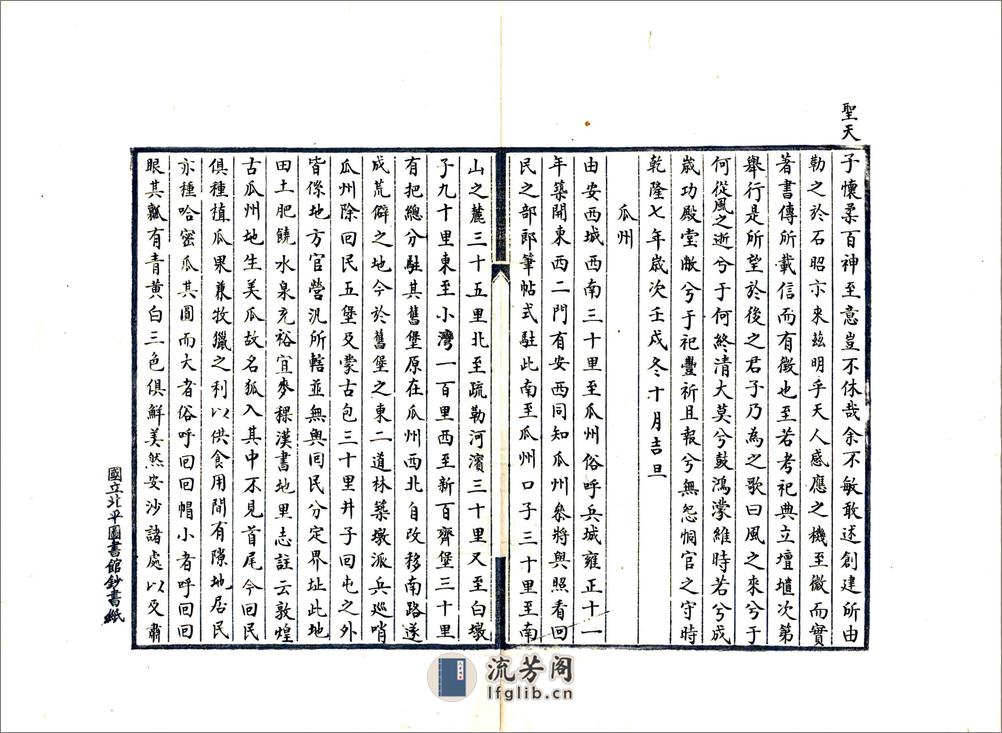 聖天
子懷柔百神至意豈不休哉余不敏敢述創建所由
勒之於石昭示來兹明乎天人感應之機至微而實
著書傳所載信而有徵也至若考祀典立壇壝次第
舉行是所望於後之君子乃為之歌曰風之來兮于
何從風之逝兮于何終清大莫兮鼓鴻濛維時若兮成
歲功殿堂敞兮于祀豐祈且報兮無怨恫官之守時
乾隆七年歲次壬戌冬十月吉旦
瓜州
由安西城西南三十里至瓜州俗呼兵城雍正十一
年築開東西二門有安西同知瓜州叅將與照看回
民之部郎筆帖式駐此南至瓜州口子三十里至南
山之麓三十五里北至疏勒河濱三十里又至白墩
子九十里東至小灣一百里西至新百齊堡三十里
有把總分駐其舊堡原在瓜州西北自改移南路遂
成荒僻之地今於舊堡之東二道林築墩派兵巡哨
瓜州除回民五堡及蒙古包三十里井子回屯之外
皆係地方官營汛所轄並無與回民分定界址此地
田土肥饒水泉充裕宜麥稞漢書地里志註云敦煌
古瓜州地生美瓜故名狐入其中不見首尾今回民
俱種植瓜果兼牧獵之利以供食用間有隙地居民
亦種哈密瓜其圓而大者俗呼回回帽小者呼回回
眼其瓤有青黃白三色俱鮮美然安沙諸處以及肅
國立北平圖書館鈔書紙
流芳阁
lfglib.cn